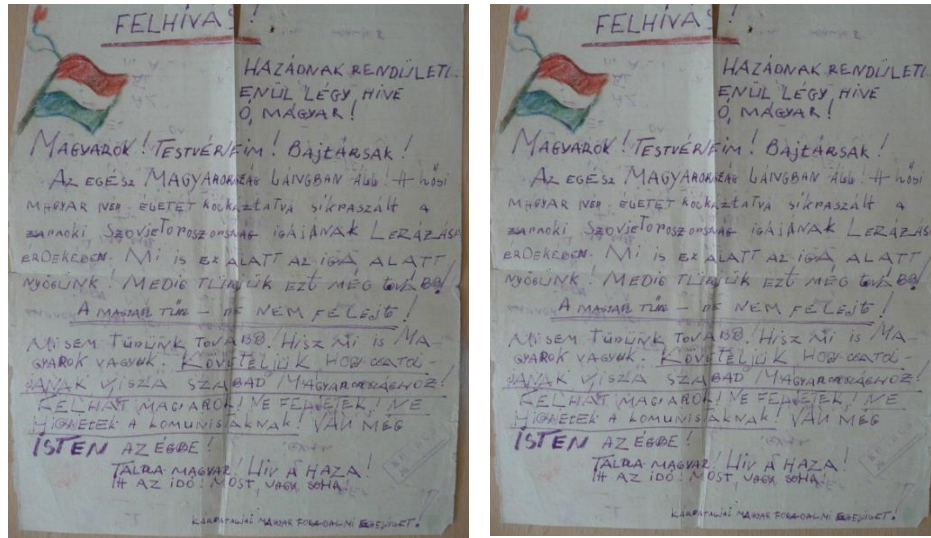 FELHÍVÁS!
HAZÁDNAK RENDÜLETL
ENÜL LÉGY HIVE
Ó, MAGYAR!
MAGYAROK! TESTVÉREIM! BAJTÁRSAK!
AZ EGÉSZ MAGYARORSZÁG LÁNGBAN ÁLL! A HŐSI
MAGYAR NÉP ÉLETÉT KOCKÁZTATVA SIKRASZÁLT A
ZARNOKI SZOVJETOROSZORSZÁG IGÁJÁNAK LERÁZÁSA
ÉRDEKÉBEN. MI IS EZ ALATT AZ IGA ALATT
NYÖGÜNK! MEDIG TŰRJÜK EZT MÉG TOVÁBB!
A MAGYAR TŰR – DE NEM FELEJT!
MI SEM TŰRÜNK TOVÁBB! HISZ MI IS MA-
GYAROK VAGYUNK. KÖVETELJÜK HOGY CSATOL-
JANAK VISZA SZABAD MAGYARORSZÁGHOZ!
FELHÁT MAGYAROK! NE FÉLJETEK! NE
HIGYJETEK A KOMUNISTÁKNAK! VAN MÉG
ISTEN AZ ÉGBE!
TALPRA MAGYAR! HIV A HAZA!
ITT AZ IDŐ! MOST, VAGY SOHA!
KÁRPÁTALJAI MAGYAR FORRADALMI EGYESÜLET!
FELHÍVÁS!
HAZÁDNAK RENDÜLETL
ENÜL LÉGY HIVE
Ó, MAGYAR!
MAGYAROK! TESTVÉREIM! BAJTÁRSAK!
AZ EGÉSZ MAGYARORSZÁG LÁNGBAN ÁLL! A HŐSI
MAGYAR NÉP ÉLETÉT KOCKÁZTATVA SIKRASZÁLT A
ZARNOKI SZOVJETOROSZORSZÁG IGÁJÁNAK LERÁZÁSA
ÉRDEKÉBEN. MI IS EZ ALATT AZ IGA ALATT
NYÖGÜNK! MEDIG TŰRJÜK EZT MÉG TOVÁBB!
A MAGYAR TŰR – DE NEM FELEJT!
MI SEM TŰRÜNK TOVÁBB! HISZ MI IS MA-
GYAROK VAGYUNK. KÖVETELJÜK HOGY CSATOL-
JANAK VISZA SZABAD MAGYARORSZÁGHOZ!
FELHÁT MAGYAROK! NE FÉLJETEK! NE
HIGYJETEK A KOMUNISTÁKNAK! VAN MÉG
ISTEN AZ ÉGBE!
TALPRA MAGYAR! HIV A HAZA!
ITT AZ IDŐ! MOST, VAGY SOHA!
KÁRPÁTALJAI MAGYAR FORRADALMI EGYESÜLET!